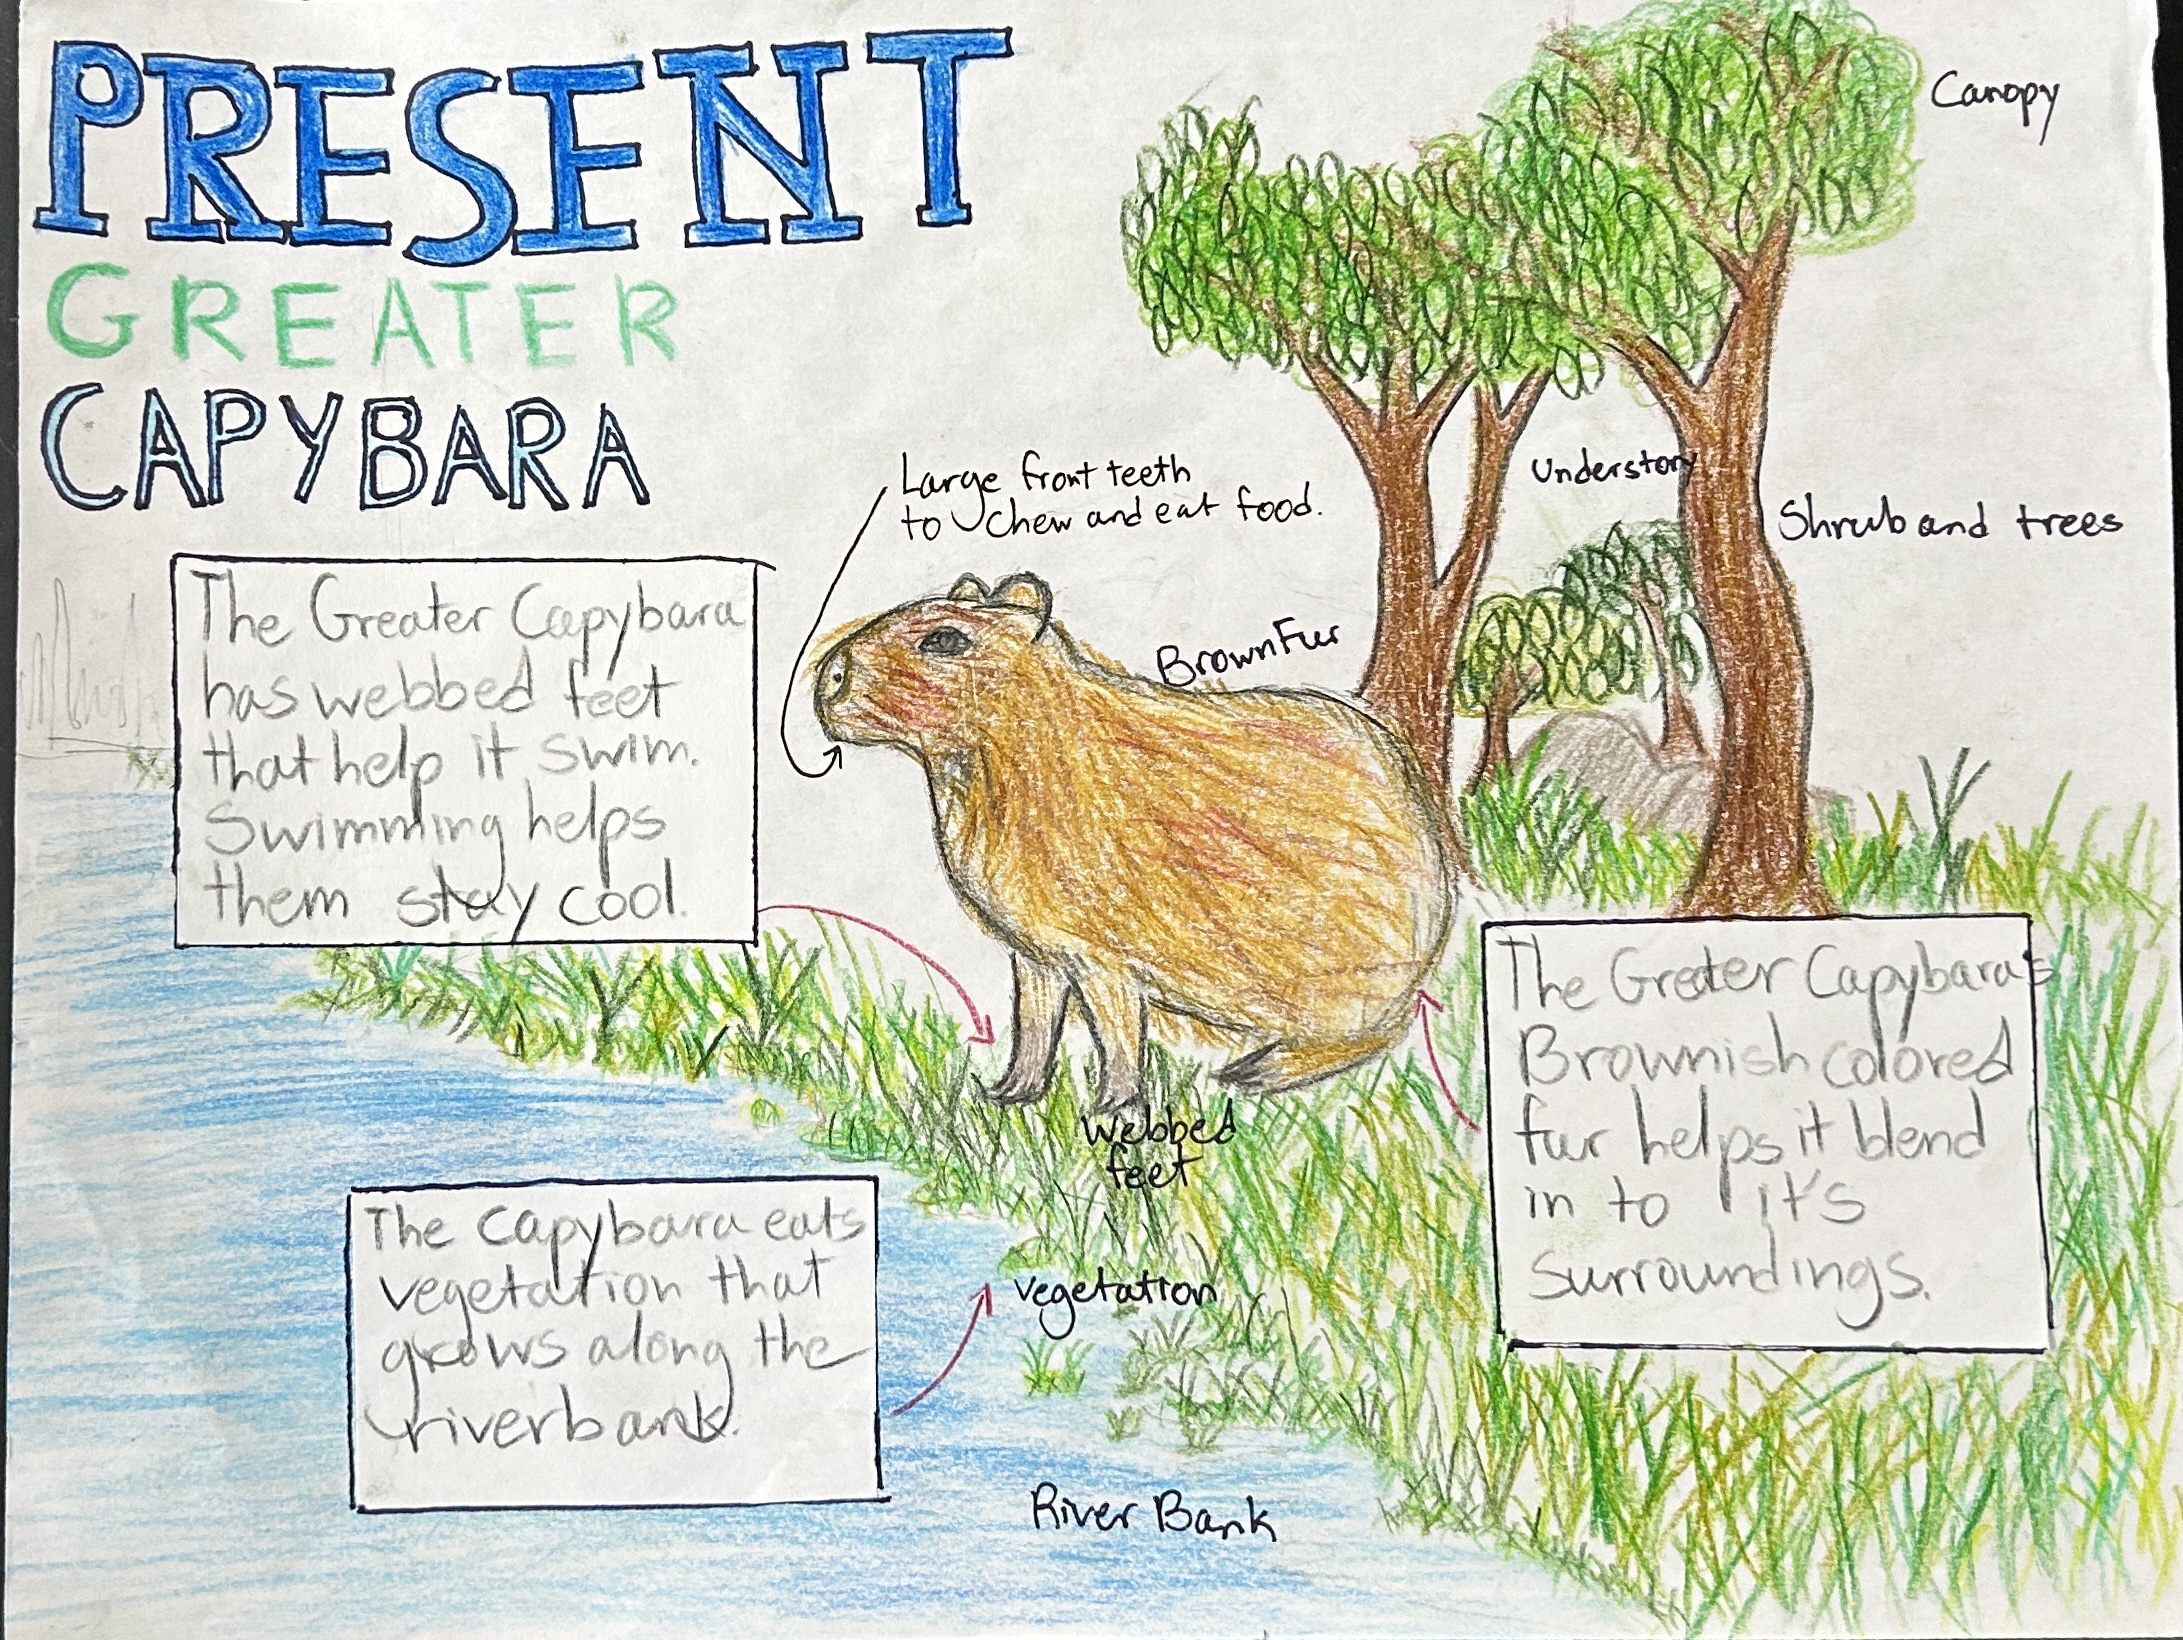 PRESENT
GREATER
CAPYBARA
Canopy
Large front teeth
to chew and eat food.
Understory
Shrub and trees
The Greater Capybara
has webbed feet
that help it swim.
Swimming helps
them stay cool.
Brown Fur
The Greater Capybara's
Brownish colored
fur helps it blend
in to it's
surroundings.
Webbed
feet
The capybara eats
vegetation that
grows along the
riverbank.
vegetation
River Bank